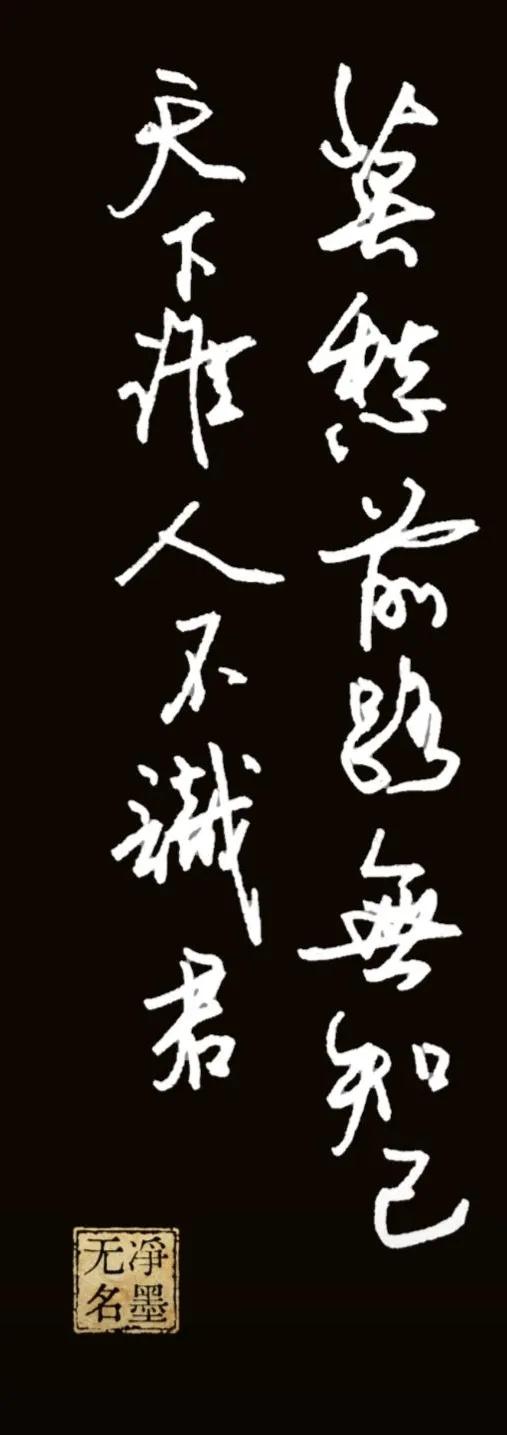 莫愁前路無知己
天下谁人不識君
净墨
无名